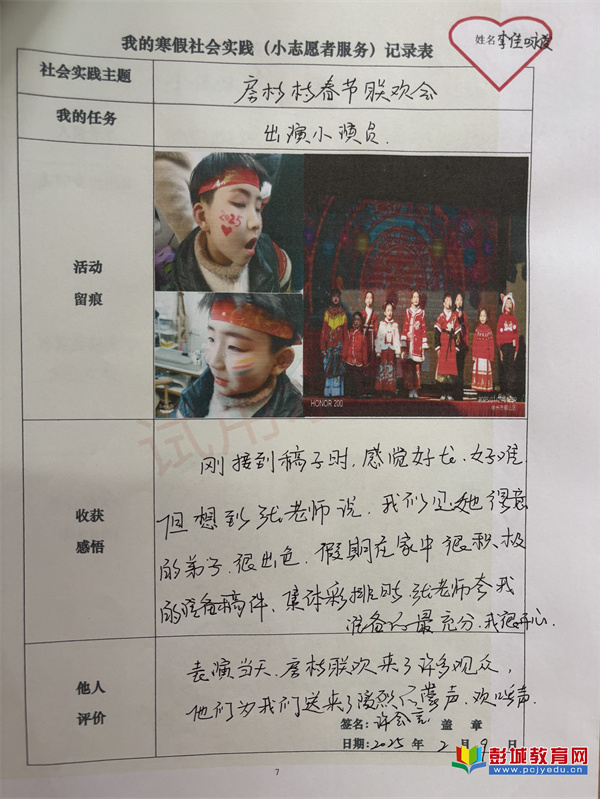 我的寒假社会实践（小志愿者服务）记录表
姓名 李佳
社会实践主题
唐村村春节联欢会
我的任务
出演小演员.
活动
留痕
2025
HONOR 200
试用
收获
感悟
刚接到稿子时,感觉好长、好难
但想到张老师说,我们是她得意
的弟子,很出色,假期在家中很积极
的准备稿件,集体彩排时,张老师夸我
准备的最充分,我很开心.
他人
评价
表演当天,唐村联欢来了许多观众,
他们为我们送来了 掌声,欢呼声.
签名: 许会 盖 章
日期: 2025 年 2 月 9 日
7
彭城教育网
www.pcjyedu.cn